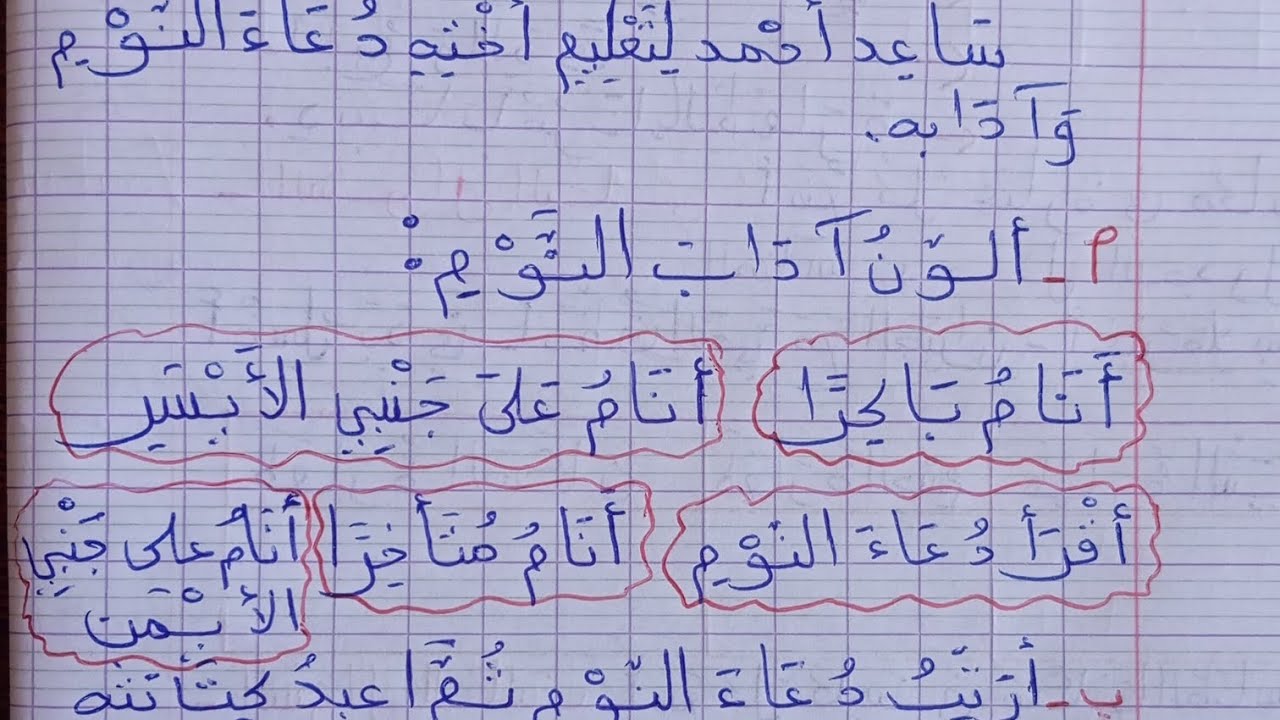 سَاعِد أحْمد لِتَعْلِيمِ أخْتِهِ دُعَاءَ النَّوْمِ
وَآدَابه.
أ - ألوّنُ آدَابَ النَّوْمِ:
أنَامُ بَاكِرًا أنَامُ عَلَى جَنْبِي الأَيْسَرِ
أقْرَأ دُعَاءَ النَّوْمِ أنَامُ مُتَأخِرًا أنَامُ على جَنْبِي
الأيْمَن
ب - أرَتّبُ دُعَاءَ النّوْمِ ثُمَّ اعيدُ كِتَابَته